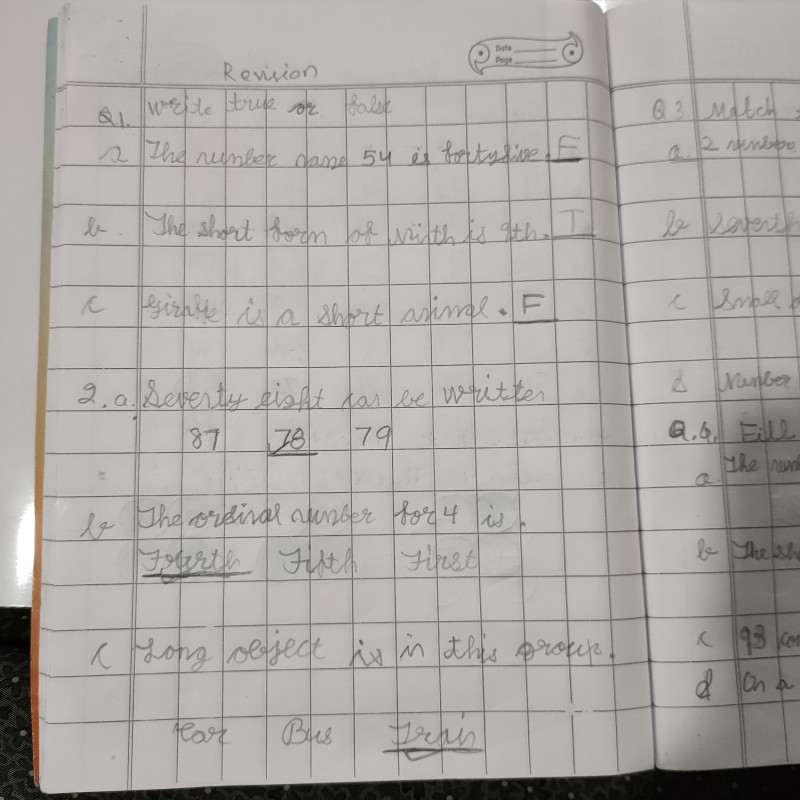 Date
Page
Revision
Q1. Write true or false
a The number name 54 is fortyfive. F
b. The short form of ninth is 9th. T
c Giraffe is a short animal. F
2. a. Seventy eight can be written
87 78 79
b The ordinal number for 4 is.
Fourth Fifth First
c Long object is in this group.
Car Bus Train
Q3 Match
a. 2 number
b Seventh
c Small
d Number
Q.4. Fill
a The num
b The sh
c 93 com
d On a